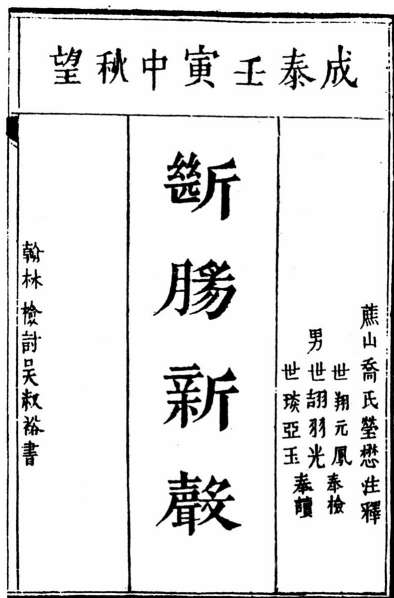 成泰壬寅中秋望
蕉山喬氏瑩懋注釋
男
世翔元鳳奉檢
世詡羽光
世琰亞玉奉讀
斷腸新聲
翰林檢討吳叔裕書